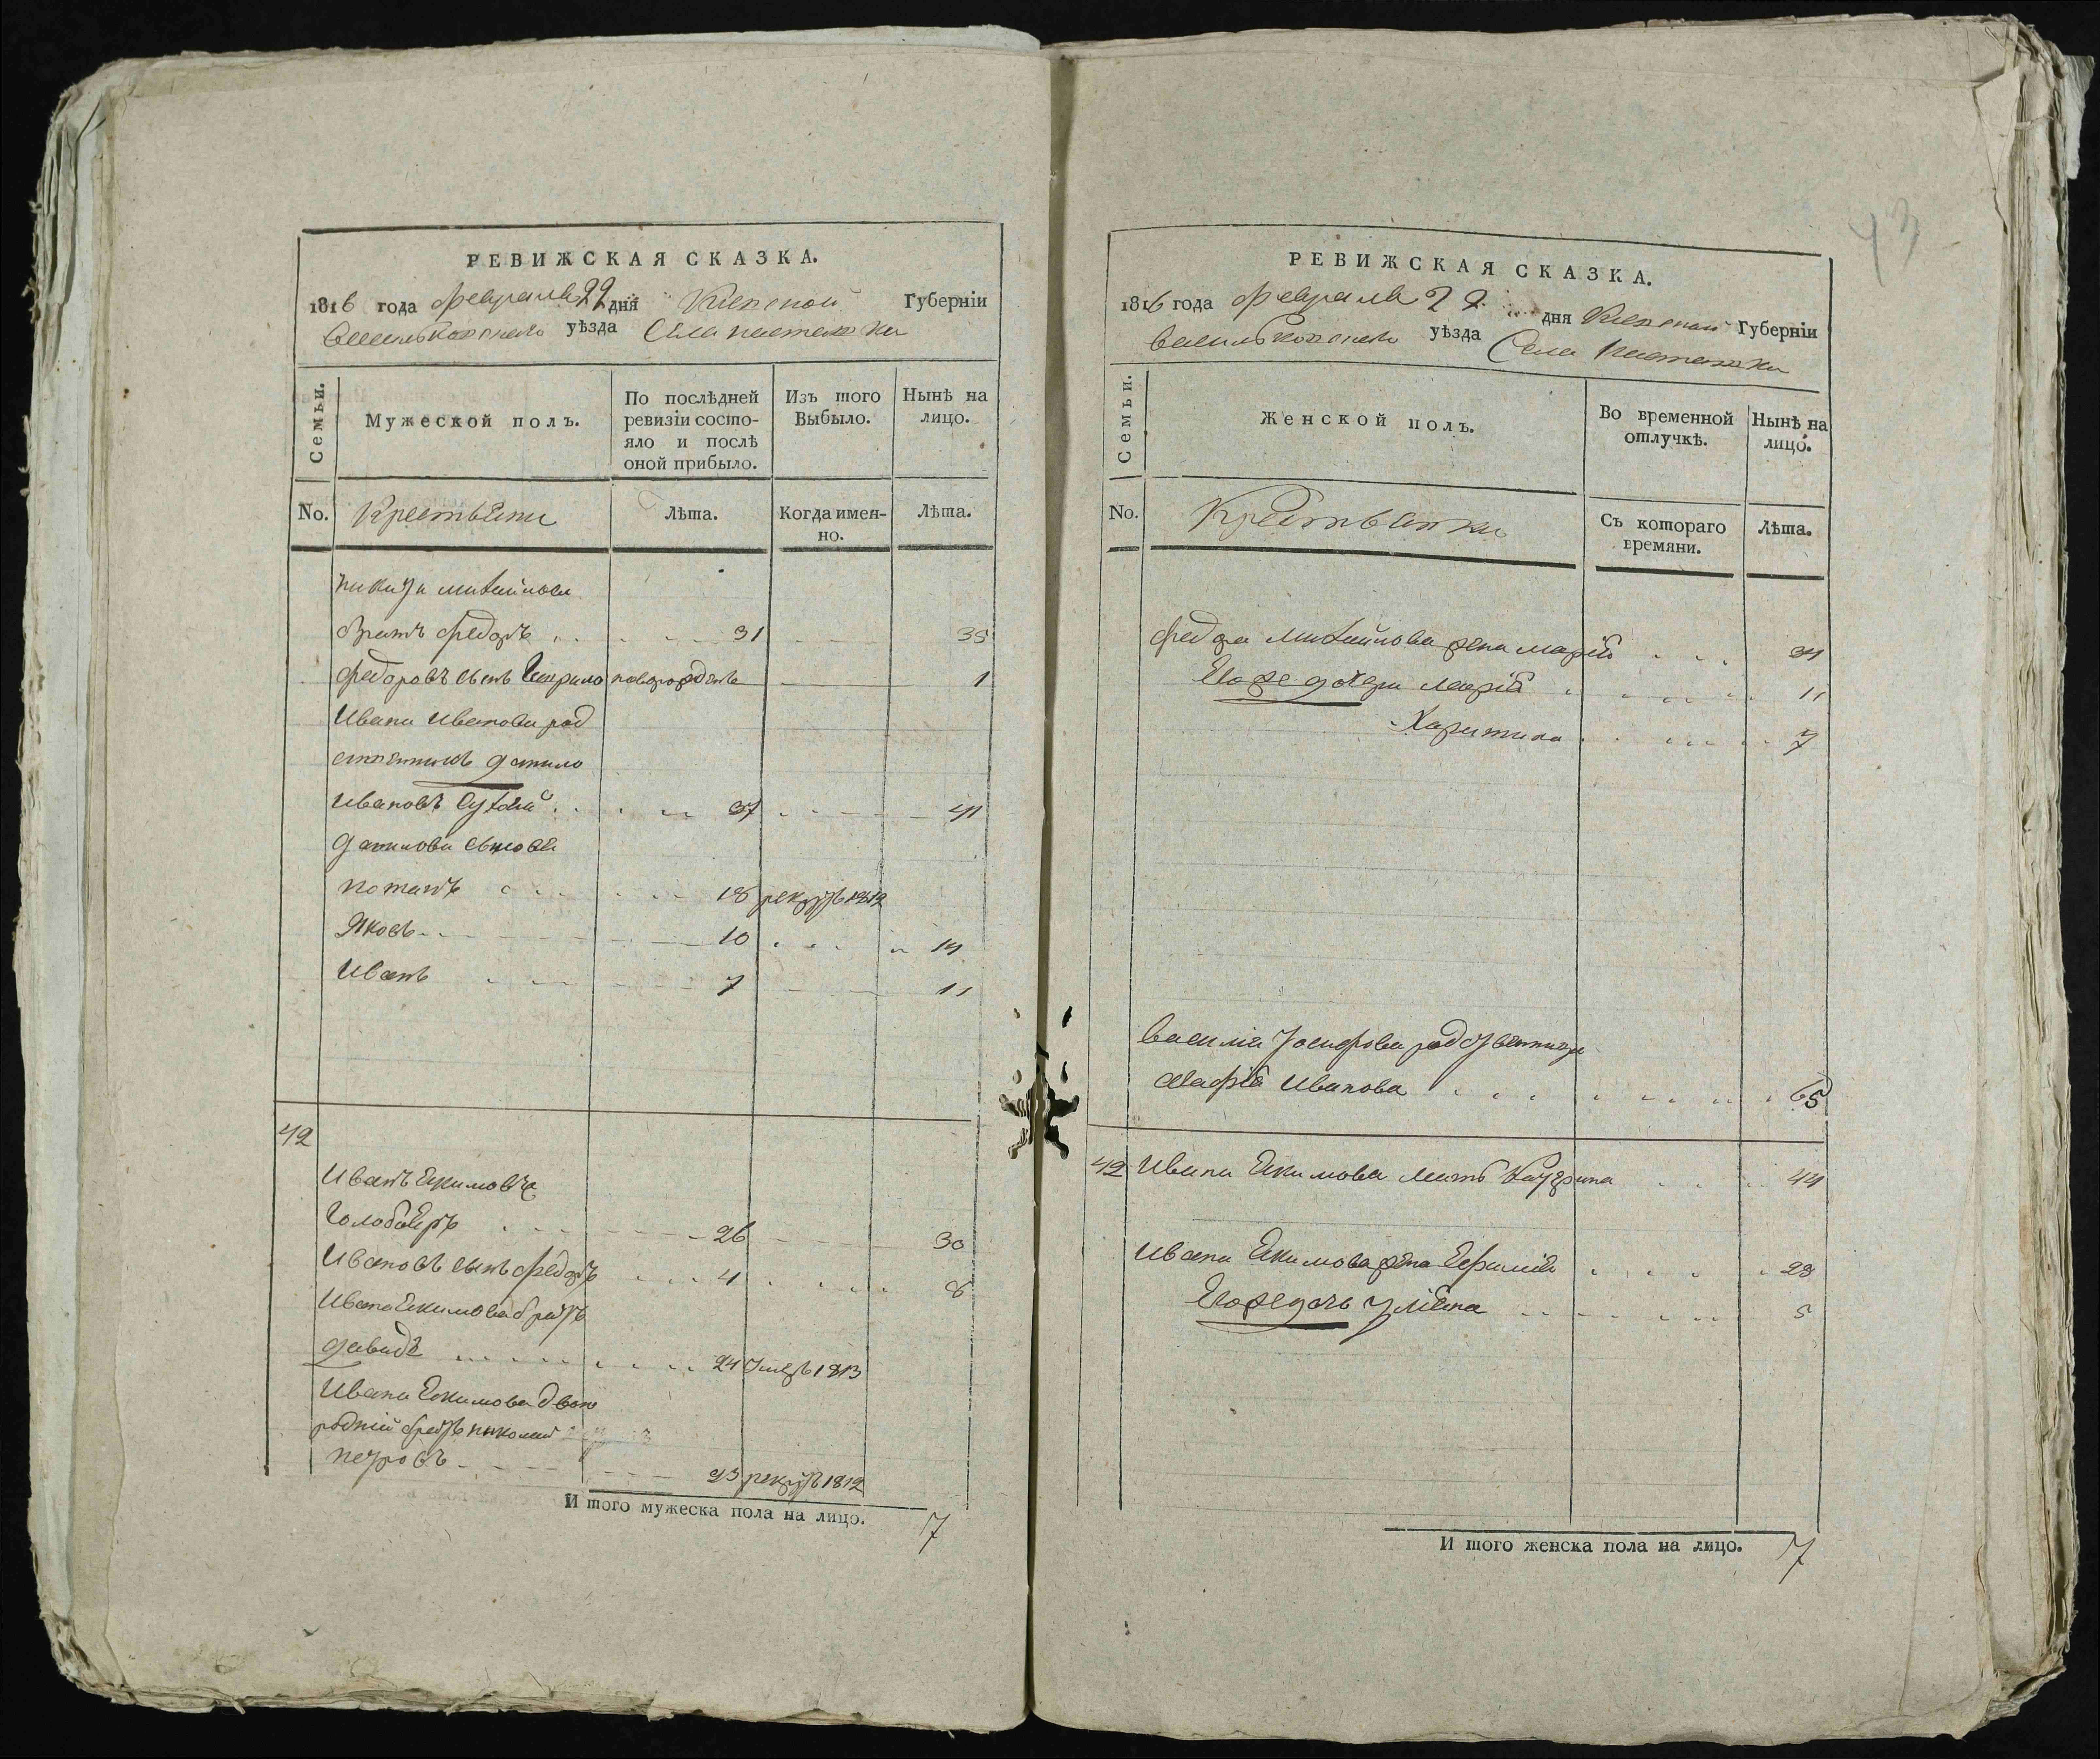 РЕВИЖСКАЯ СКАЗКА.
1816 года февраля 22 дня Киевской Губерніи
Васильковского уѣзда Села
Семьи.
Мужеской полъ.
По послѣдней
ревизіи состо-
яло и послѣ
оной прибыло.
Изъ того
Выбыло.
Нынѣ на
лицо.
No.
Крестьяни
Лѣта.
Когда имен-
но.
Лѣта.
Никиты Михайлова
братъ Федоръ 31 35
Федоровъ сынъ Гаврило новорожденъ 1
Ивана Иванова род
ственникъ Данило
Ивановъ 37 41
Данилови синовя
Потапъ 18 рекрутъ 1812
Яковъ 10 14
Иванъ 7 11
42
Иванъ Екимовъ
Голобоеръ 26 30
Ивановъ сынъ Федоръ 4 8
Ивана Екимова братъ
Давидъ 24 Умеръ 1813
Ивана Екимова двою
родній братъ Николай
Петровъ 23 рекрутъ 1812
И того мужеска пола на лицо. 7
43
РЕВИЖСКАЯ СКАЗКА.
1816 года февраля 22 дня Киевской Губерніи
Васильковского уѣзда Села
Семьи.
Женской полъ.
Во временной
отлучкѣ.
Нынѣ на
лицо.
No.
Крестьянки
Съ котораго
времяни.
Лѣта.
Федора Михайлова жена Марія 34
Егоже дочери Марія 11
Харитина 7
Василія Іосифова родственница
Марія Иванова 65
42 Ивана Екимова мать Катерина 44
Ивана Екимова жена Ефимія 28
Егоже дочь Уліяна 5
И того женска пола на лицо. 7